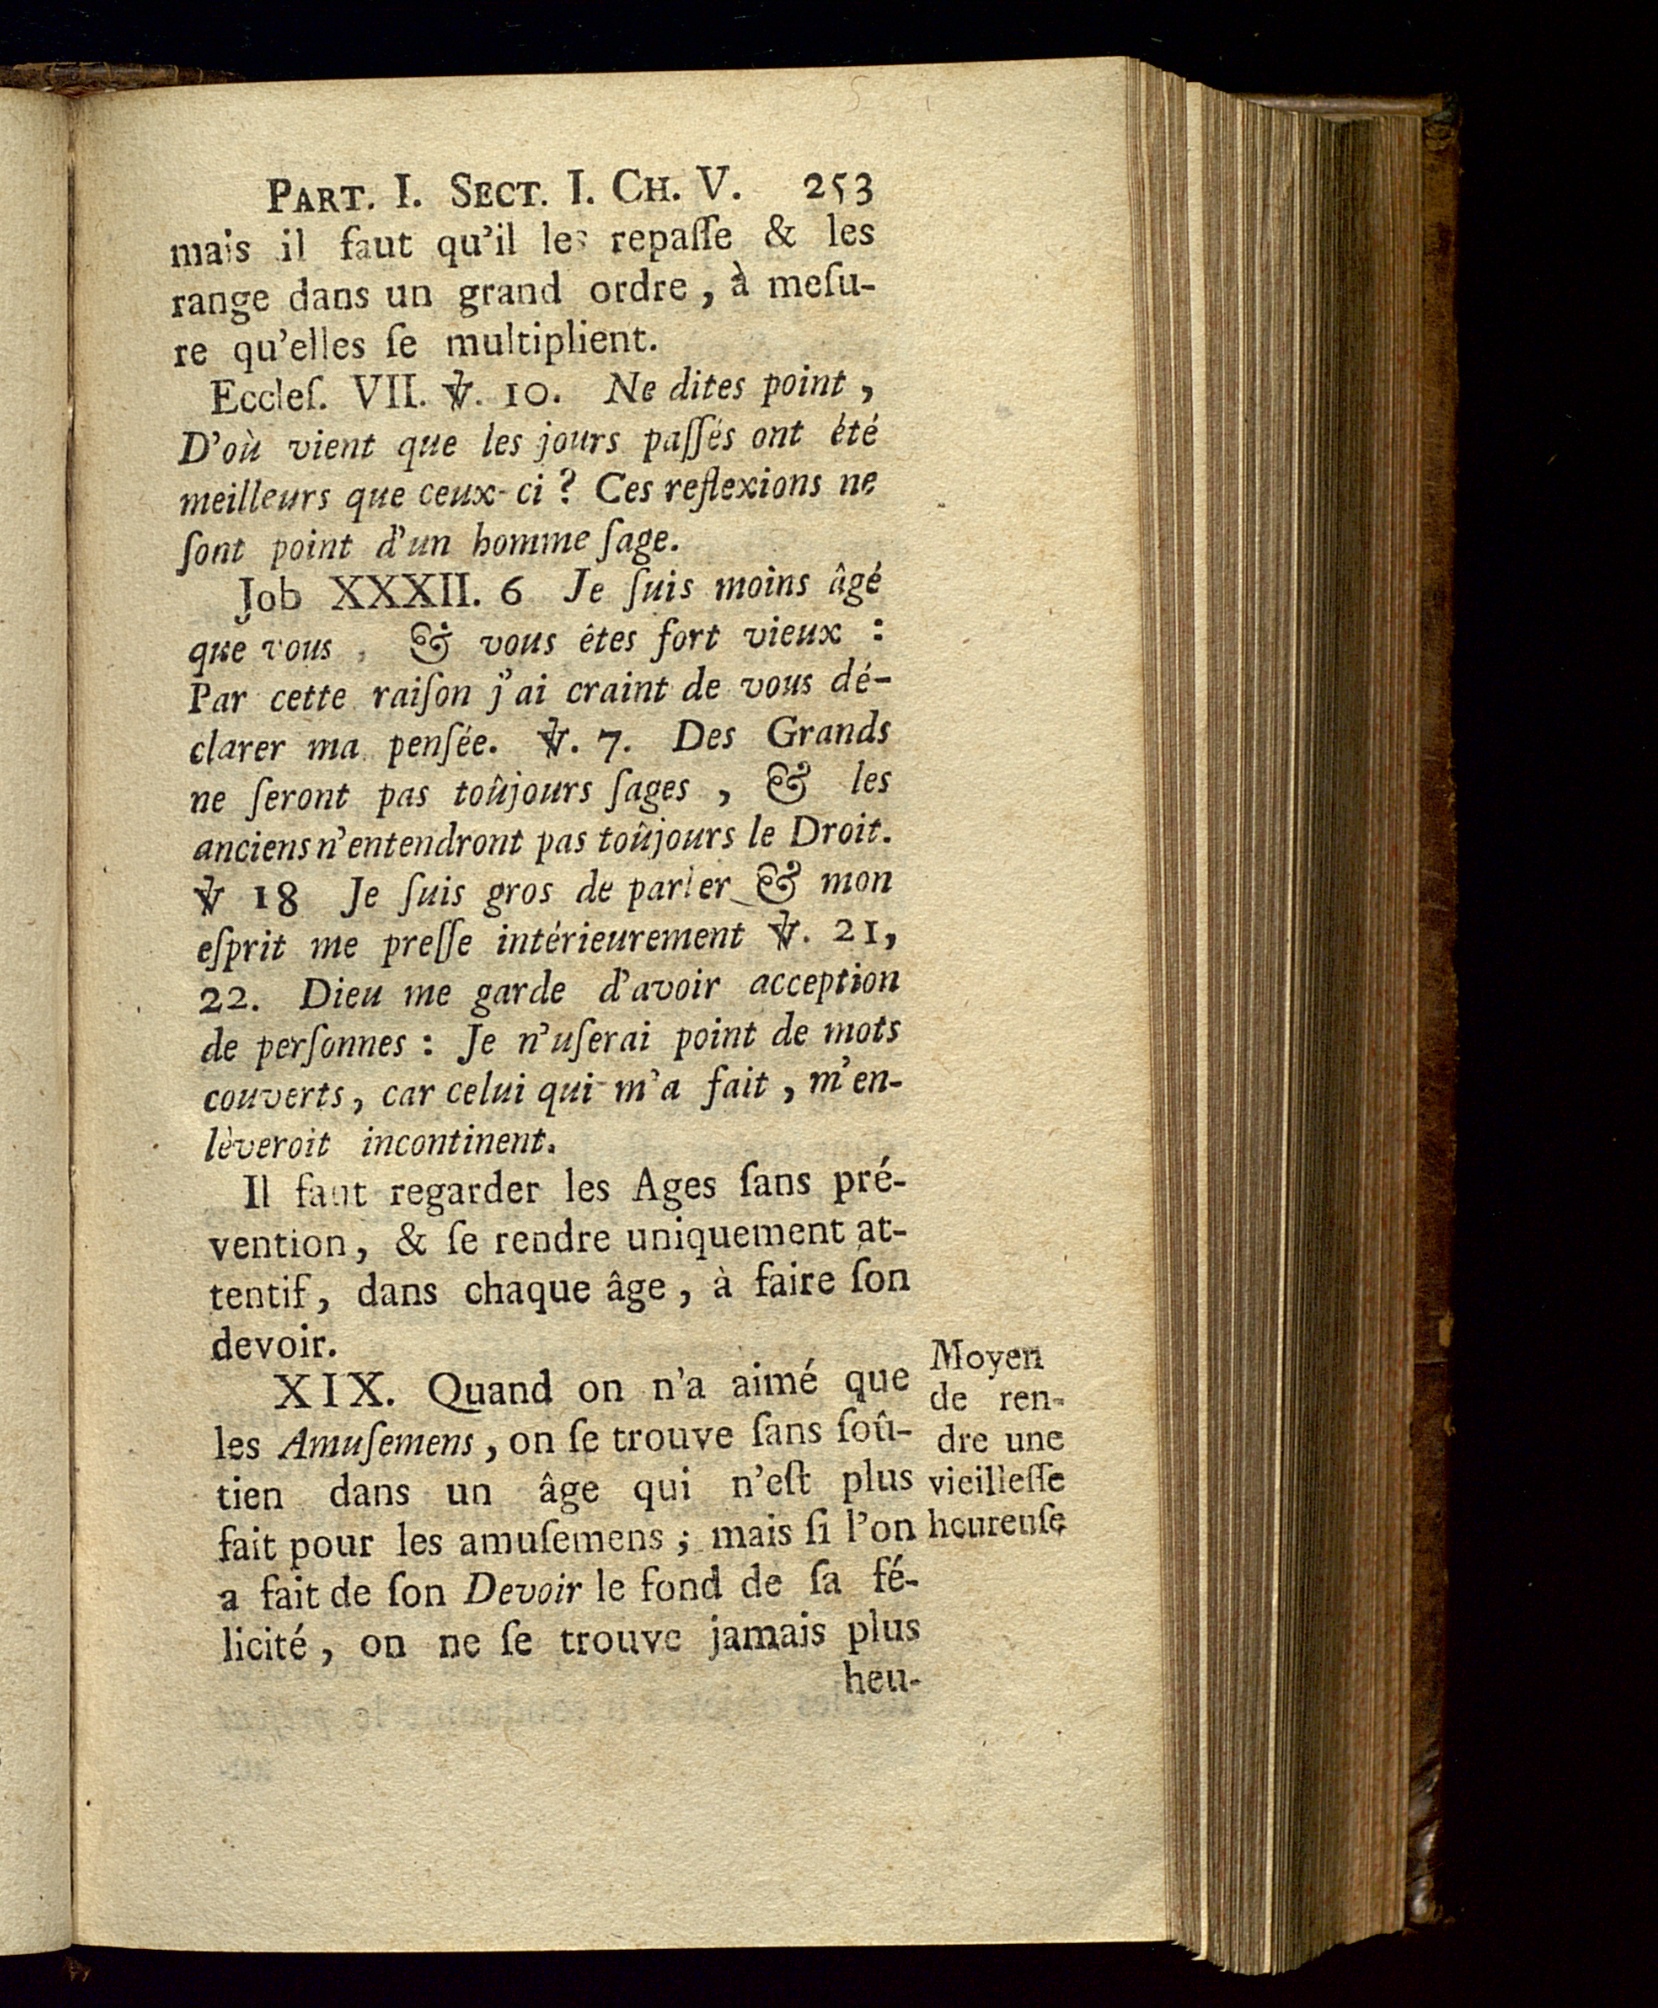 PART. I. SECT. I. CH. V. 253
mais il faut qu'il les repaſſe & les
range dans un grand ordre, à meſu-
re qu'elles ſe multiplient.
Eccleſ. VII. ℣. 10. Ne dites point,
D'où vient que les jours paſſés ont été
meilleurs que ceux-ci? Ces reflexions ne
ſont point d'un homme ſage.
Job XXXII. 6 Je ſuis moins âgé
que vous, & vous êtes fort vieux:
Par cette raiſon j'ai craint de vous dé-
clarer ma penſée. ℣. 7. Des Grands
ne ſeront pas toûjours ſages, & les
anciens n'entendront pas toûjours le Droit.
℣ 18 Je ſuis gros de parler & mon
eſprit me preſſe intérieurement ℣. 21,
22. Dieu me garde d'avoir acception
de perſonnes: Je n'uſerai point de mots
couverts, car celui qui m'a fait, m'en-
lèveroit incontinent.
Il faut regarder les Ages ſans pré-
vention, & ſe rendre uniquement at-
tentif, dans chaque âge, à faire ſon
devoir.
XIX. Quand on n'a aimé que
les Amuſemens, on ſe trouve ſans ſoû-
tien dans un âge qui n'eſt plus
fait pour les amuſemens; mais ſi l'on
a fait de ſon Devoir le fond de ſa fé-
licité, on ne ſe trouve jamais plus
heu-
Moyen
de ren-
dre une
vieilleſſe
heureuſe